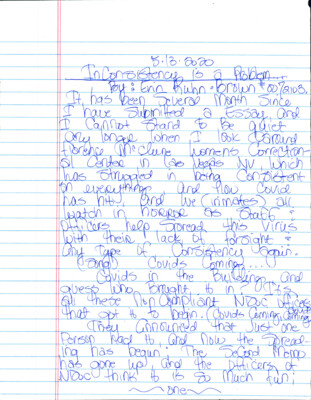 5-13-2020
Inconsistency is a Problem
By: Erin Kuhn-Brown
It has been several Month Since
I have Submitted a Essay and
I Cannot Stand to Be quiet
any longer when I look around
Florence McClure womens Correction-
al Center in Las Vegas NV which
has Struggled in being Consistent
on everything, and now Covid
has hit, and we (inmates) all
watch in horror as Staff &
officers help Spread this virus
with their lack of forsight &
any type of Consistency again.
(Song) Covids Coming....
Covids in the Building and
guess who brought it in
all these Non Compliant NDOC officers
that got it to begin. (Covids Coming, Coming)
They announced that Just one
Person had it and Now the Spread-
ing has begun: The Second
has gone up and the officers of
NDOC think it is So much fun;
one